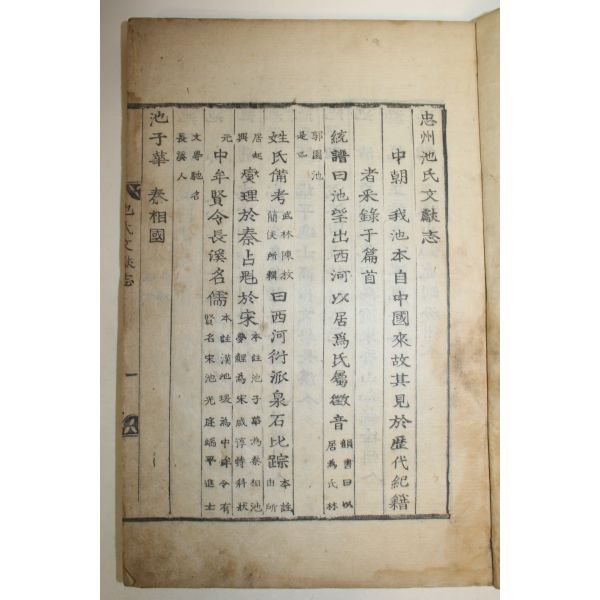 忠州池氏文獻志
中朝 我池本自中國來故其見於歷代紀籍
者采錄于篇首
統譜曰池望出西河以居爲氏屬徵音 韻書曰以居爲氏林
郭園池是也
姓氏備考 武林陳枚簡侯所輯 曰西河衍派泉石比踪 本註由所
居起興 爕理於秦占魁於宋 本註池子華爲秦相池夢鯉爲宋咸淳特科狀
元 中牟賢令長溪名儒 本註漢池瑗爲中牟令有賢名宋池光庭端平進士
文學馳名長溪人
池子華 秦相國
池氏文獻志
一